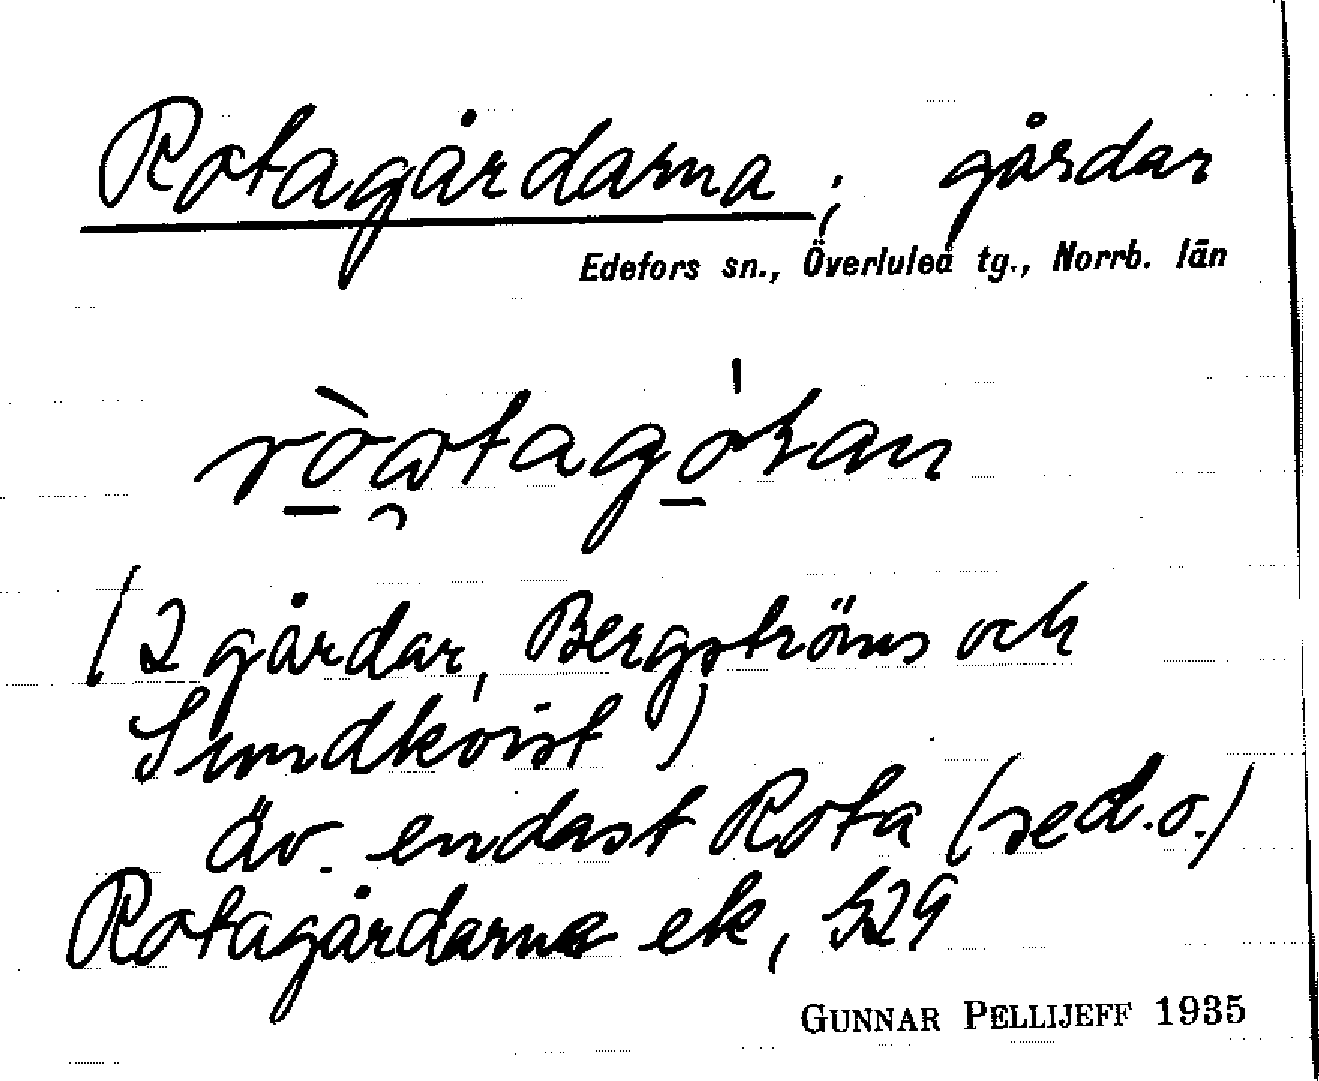 Rotagårdarna, gårdar
Edefors sn., Överluleå tg., Norrb. län
(2 gårdar, Bergströms och
Sundkvist)
äv. endast Rota (se d.o.)
Rotagårdarna ek,
GUNNAR PELLIJEFF 1935